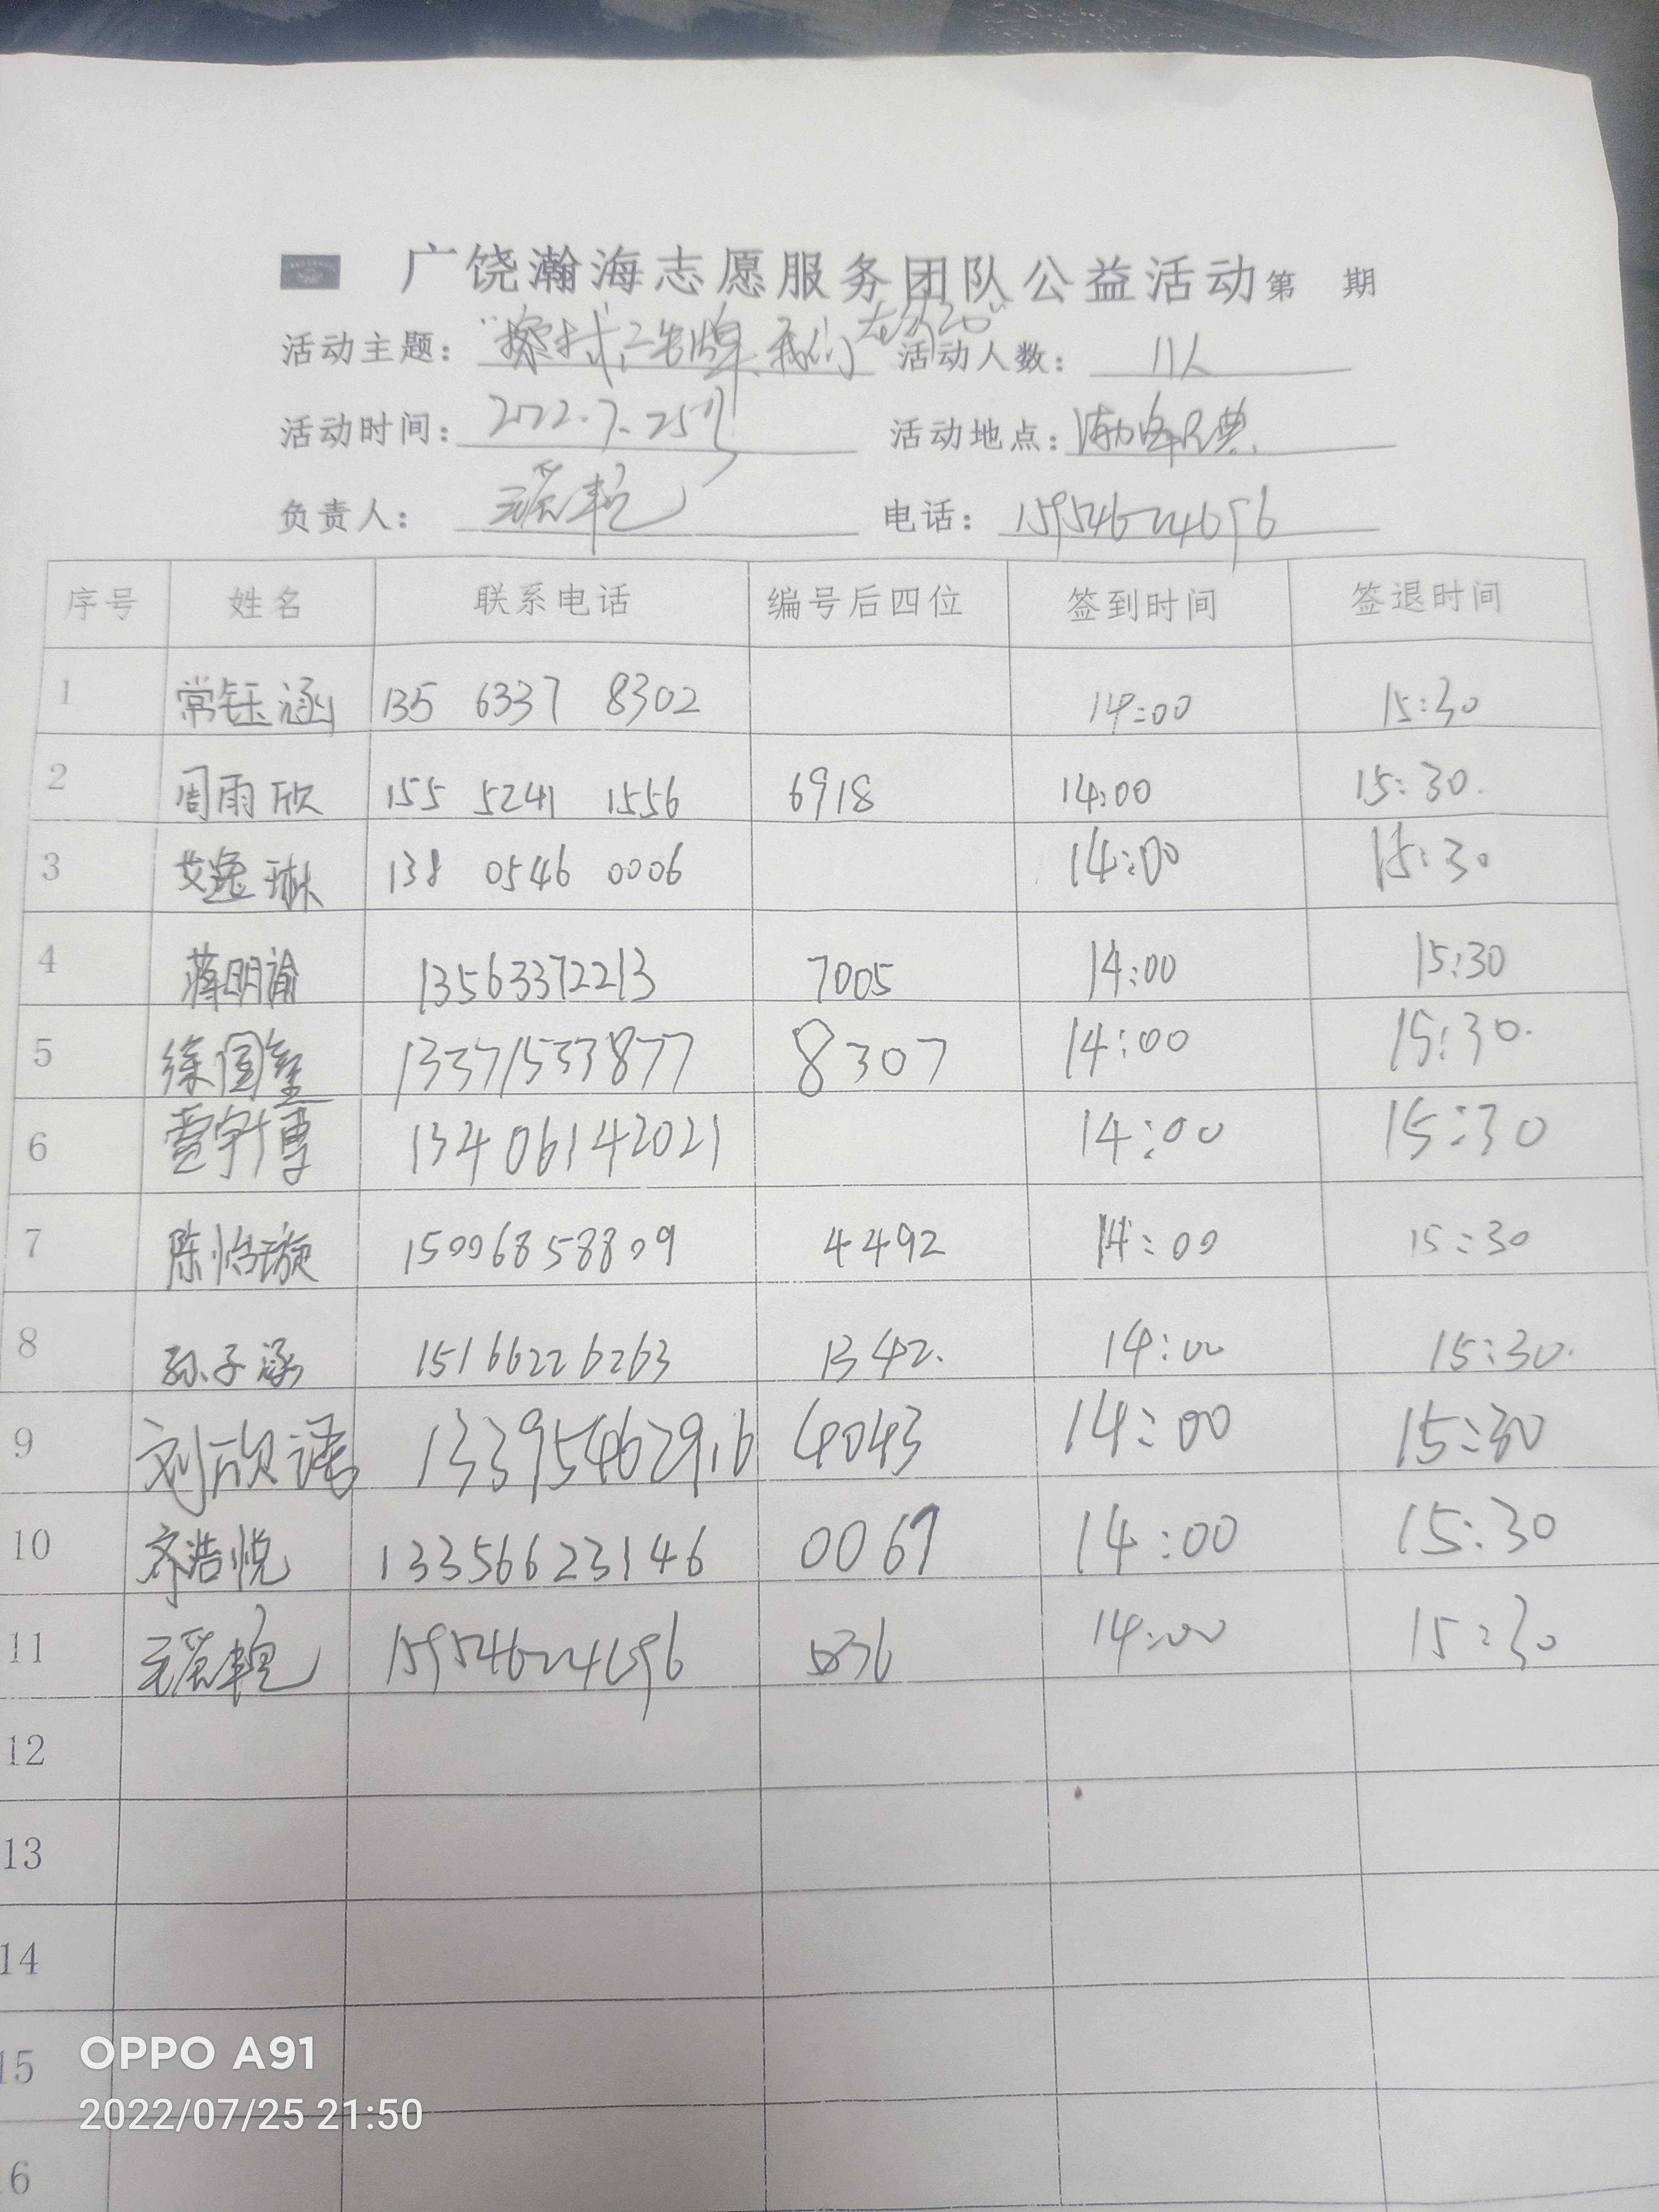 广饶瀚海志愿服务团队公益活动第 期
活动主题： “擦拭公告牌，我们在行动” 活动人数： 11人
活动时间： 2022.7.25 活动地点：
负责人： 电话： 15954624696
序号 姓名 联系电话 编号后四位 签到时间 签退时间
1 常钰涵 135 6337 8302 14:00 15:30
2 周雨欣 155 5241 1556 6918 14:00 15:30.
3 艾逸琳 138 0546 0006 14:00 15:30
4 蒋明谕 13563372213 7005 14:00 15:30
5 徐国玺 13371533877 8307 14:00 15:30.
6 宇博 13406142021 14:00 15:30
7 陈怡璇 15006858809 4492 14:00 15:30
8 孙子涵 15166226263 1342. 14:00 15:30.
9 刘欣语 13395462916 4043 14:00 15:30
10 齐浩悦 13356623146 0067 14:00 15:30
11 15954624696 14:00 15:30
12
13
14
15
16
OPPO A91
2022/07/25 21:50